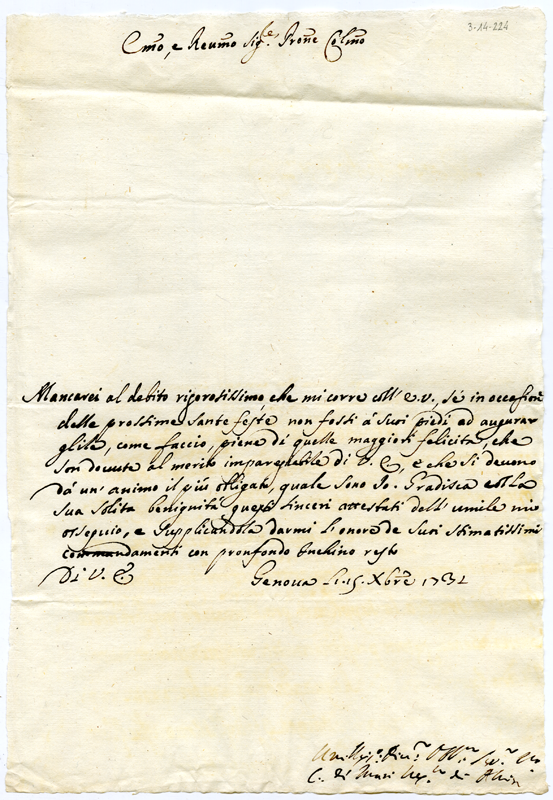 3-14-224
Emo, e Reumo Sigre. Prone Colmo
Mancarei al debito rigorosissimo che mi corre coll' E.V., se in occasione
delle prossime sante feste non fossi a' suoi piedi ad augurar
glile, come faccio, piene dà quelle maggiori felicità, che
son dovute al merito impareggiabile di V.E., e che si devono
dà un' animo il più obligato, quale sono Io. Gradisca colla
sua solita benignità questi sinceri attestati dell' umile mio
ossequio, e supplicandola darmi l'onore de suoi stimatissimi
commandamenti con pronfondo inchino resto
Di V. E.
Genova li 15. Xbre 1731